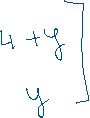 4 + y
y ]